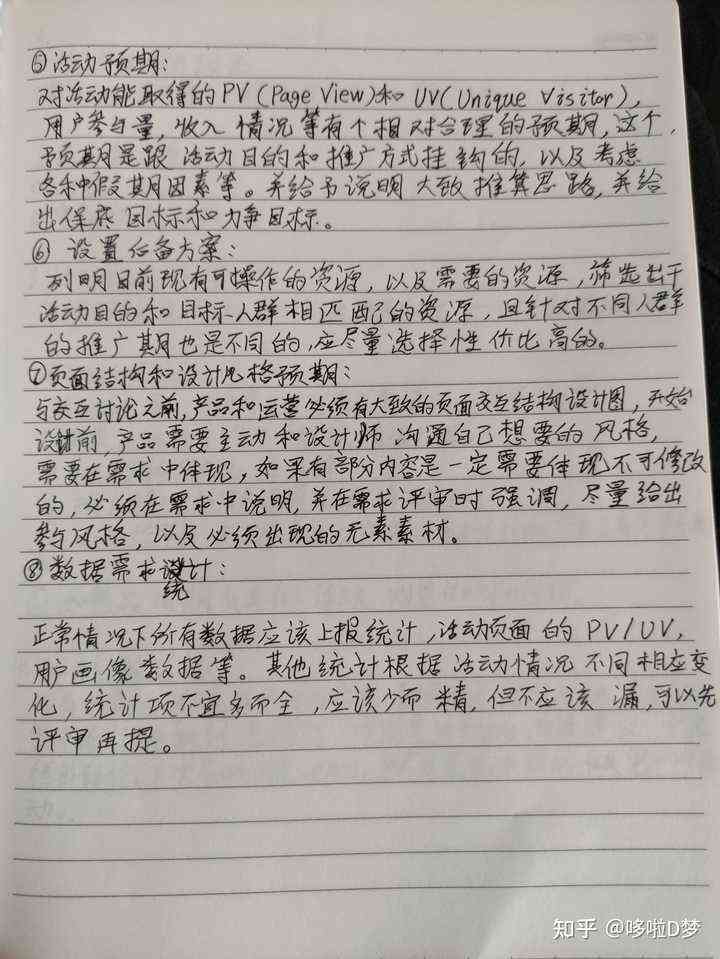 ⑤活动预期:
对活动能取得的PV(Page View)和 UV(Unique Visitor),
用户参与量,收入情况等有个相对合理的预期,这个
预期是跟活动目的和推广方式挂钩的,以及考虑
各种假期因素等。并给予说明大致推算思路,并给
出保底目标和力争目标。
⑥ 设置后备方案:
列明目前现有可操作的资源,以及需要的资源,筛选出于
活动目的和目标人群相匹配的资源,且针对不同人群
的推广期也是不同的,应尽量选择性价比高的。
⑦页面结构和设计风格预期:
与交互讨论之前,产品和运营必须有大致的页面交互结构设计图,开始
设计前,产品需要主动和设计师沟通自己想要的风格,
需要在需求中体现,如果有部分内容是一定需要体现不可修改
的,必须在需求中说明,并在需求评审时强调,尽量给出
参与风格,以及必须出现的元素素材。
⑧数据需求统计:
正常情况下所有数据应该上报统计,活动页面的PV/UV,
用户画像数据等。其他统计根据活动情况不同相应变
化,统计项不宜多而全,应该少而精,但不应该漏,可以先
评审再提。
知乎 @哆啦D梦